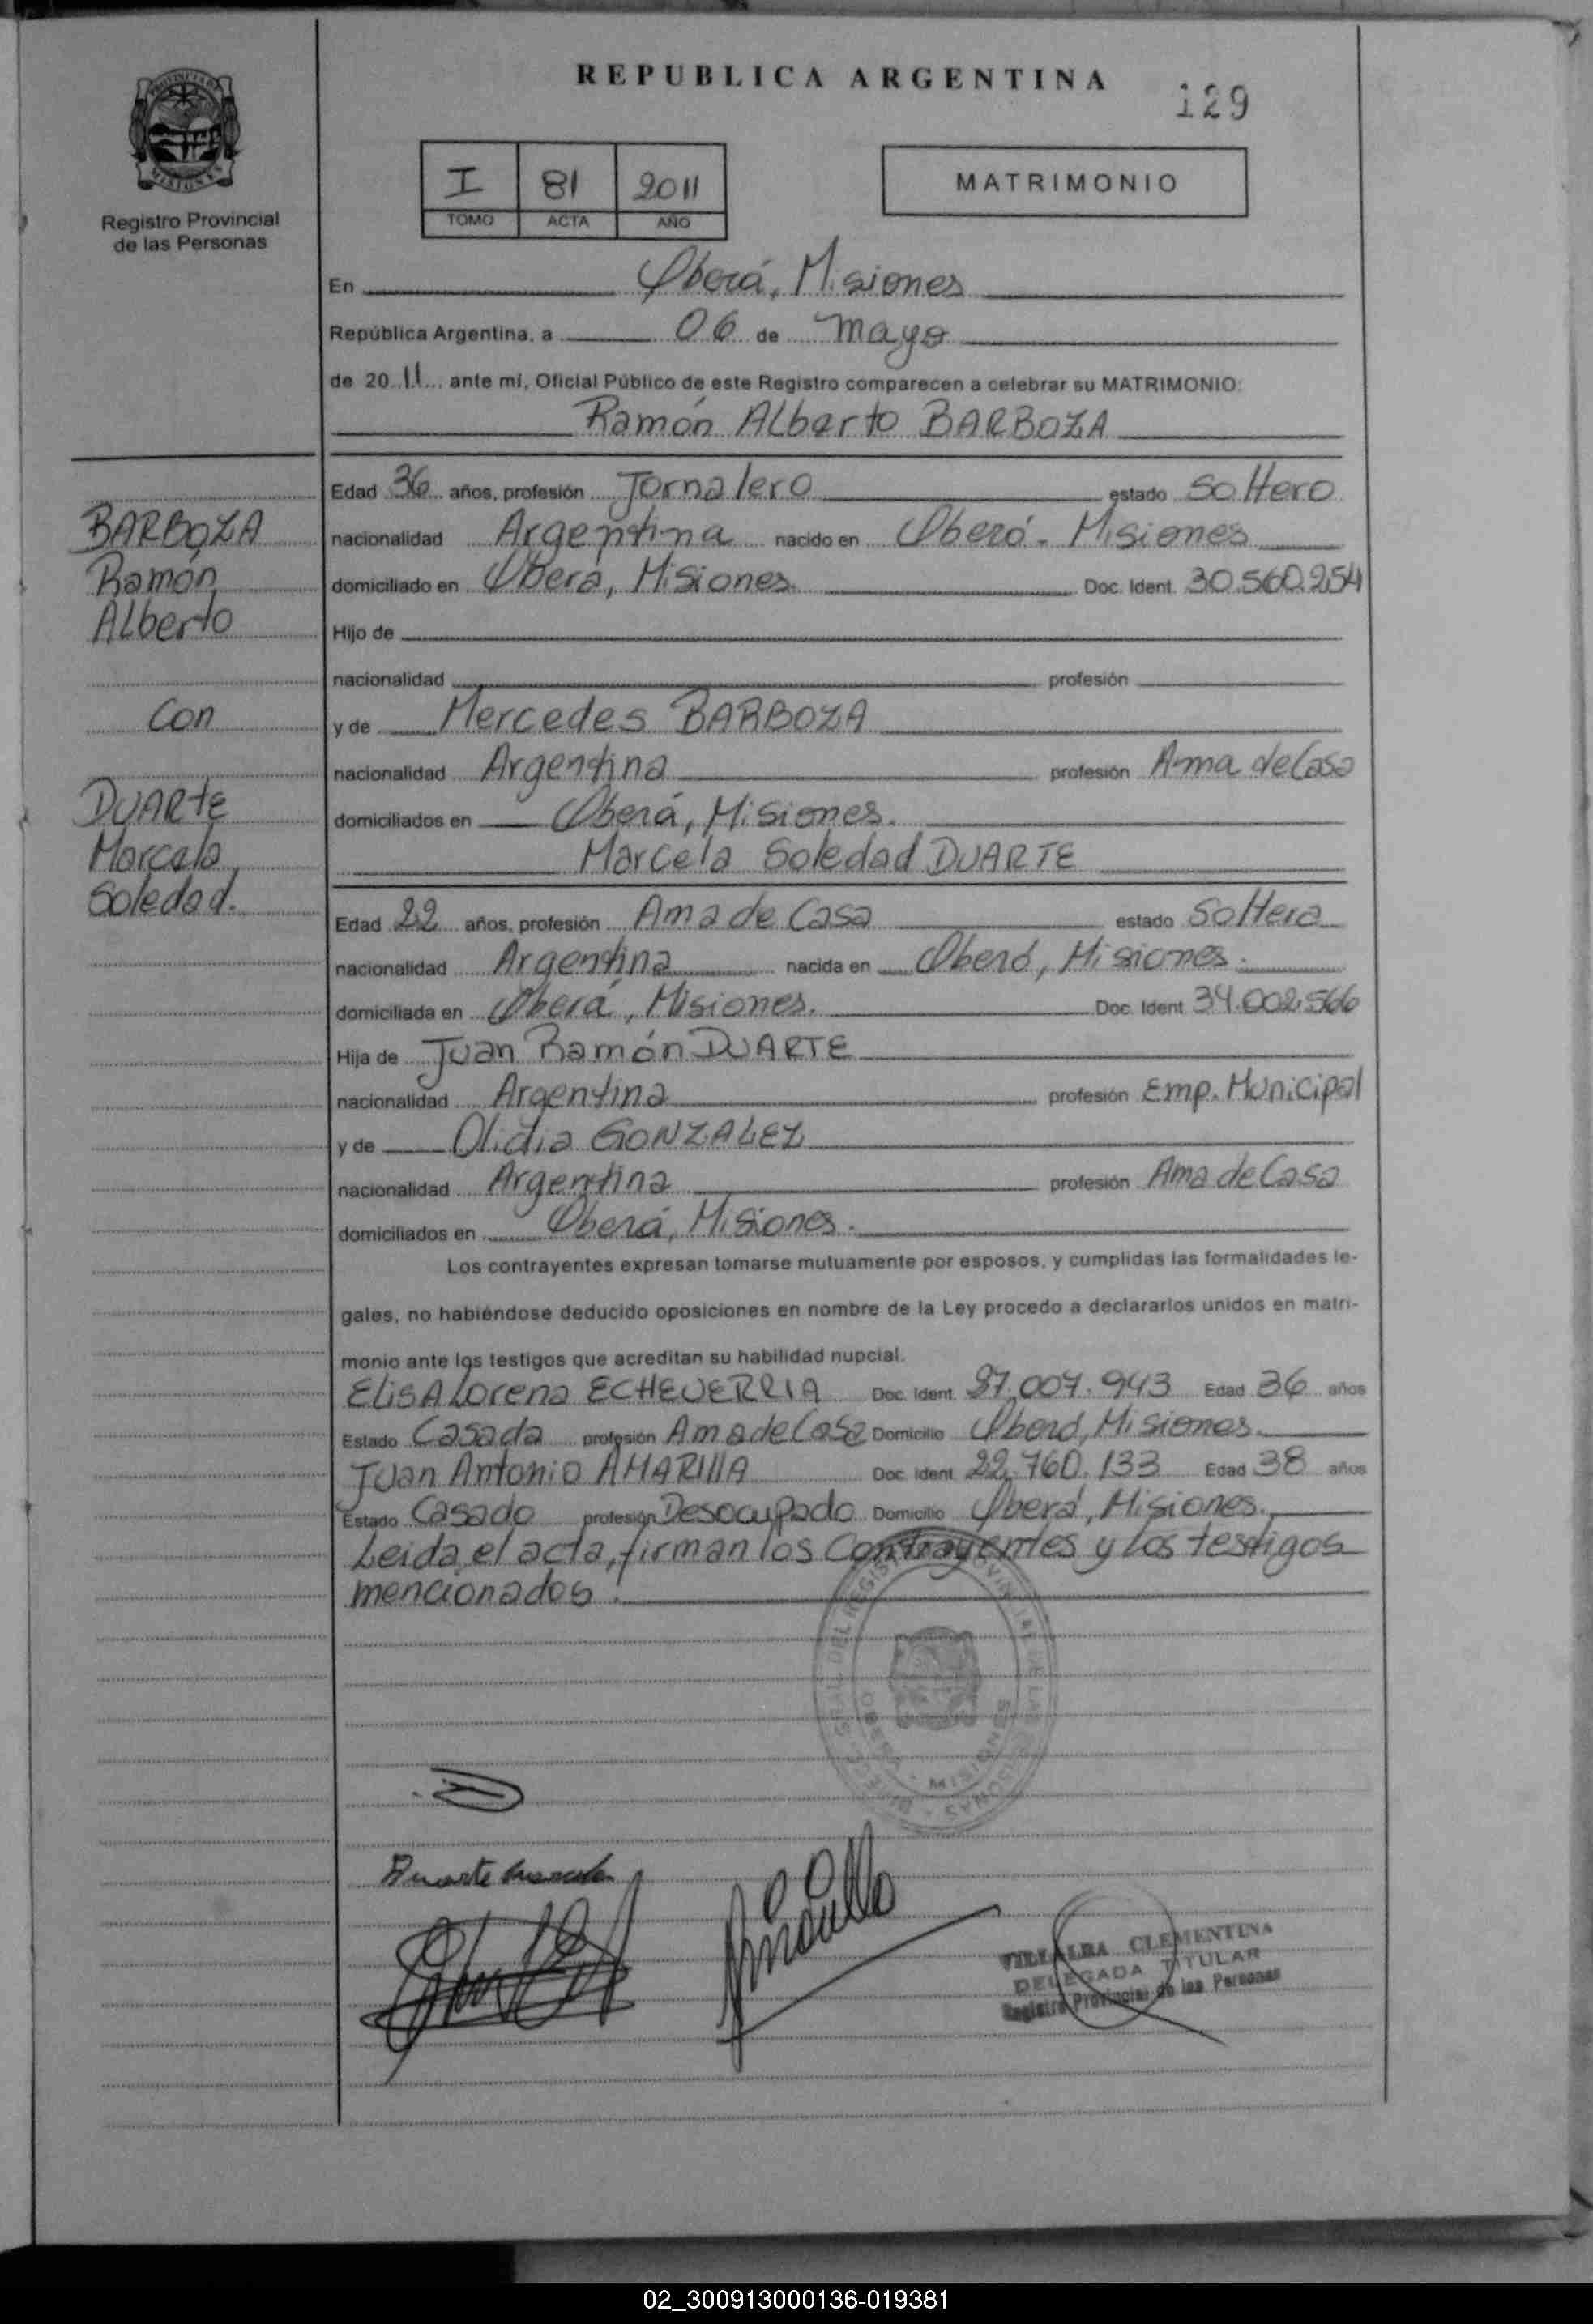 REPUBLICA ARGENTINA
129
I 81 2011
TOMO ACTA AÑO
MATRIMONIO
PROVINCIA DE MISIONES
Registro Provincial
de las Personas
En Oberá, Misiones
República Argentina, a 06 de mayo
de 2011 ante mi, Oficial Público de este Registro comparecen a celebrar su MATRIMONIO:
Ramón Alberto BARBOZA
Edad 36 años, profesión Jornalero estado Soltero
BARBOZA
nacionalidad Argentina nacido en Oberá - Misiones
Ramón
domiciliado en Oberá, Misiones. Doc. Ident. 30.560.254
Alberto
Hijo de
nacionalidad profesión
Con
y de Mercedes BARBOZA
nacionalidad Argentina profesión Ama de Casa
DUARTE
domiciliados en Oberá, Misiones.
Marcela
Marcela Soledad DUARTE
Soledad.
Edad 22 años, profesión Ama de Casa estado Soltera
nacionalidad Argentina nacida en Oberá, Misiones.
domiciliada en Oberá, Misiones. Doc. Ident. 34.002.566
Hija de Juan Ramón DUARTE
nacionalidad Argentina profesión Emp. Municipal
y de Olidia GONZALEZ
nacionalidad Argentina profesión Ama de Casa
domiciliados en Oberá, Misiones.
Los contrayentes expresan tomarse mutuamente por esposos, y cumplidas las formalidades le-
gales, no habiéndose deducido oposiciones en nombre de la Ley procedo a declararlos unidos en matri-
monio ante los testigos que acreditan su habilidad nupcial.
Elisa Lorena ECHEVERRIA Doc. Ident. 27.007.943 Edad 36 años
Estado Casada profesión Ama de Casa Domicilio Oberá, Misiones.
Juan Antonio AMARILLA Doc. Ident. 22.760.133 Edad 38 años
Estado Casado profesión Desocupado Domicilio Oberá, Misiones.
Leida el acta, firman los Contrayentes y los testigos
mencionados.
Duarte Marcela
VILLALBA CLEMENTINA
DELEGADA TITULAR
Registro Provincial de las Personas
02_300913000136-019381